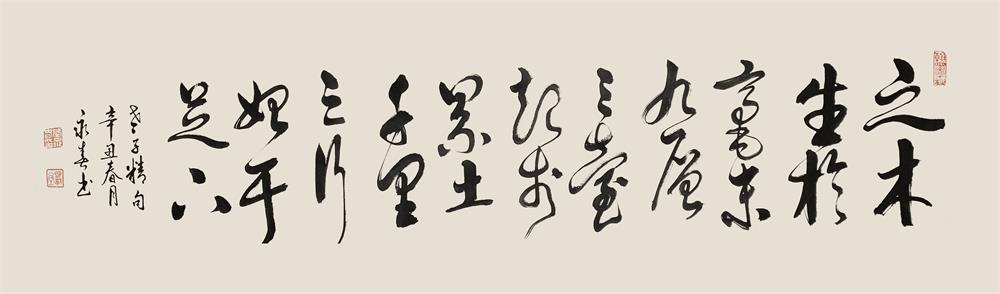 之木
生於
毫末
九層
之臺
起於
累土
千里
之行
始于
足下
老子精句
辛丑春月
永春书